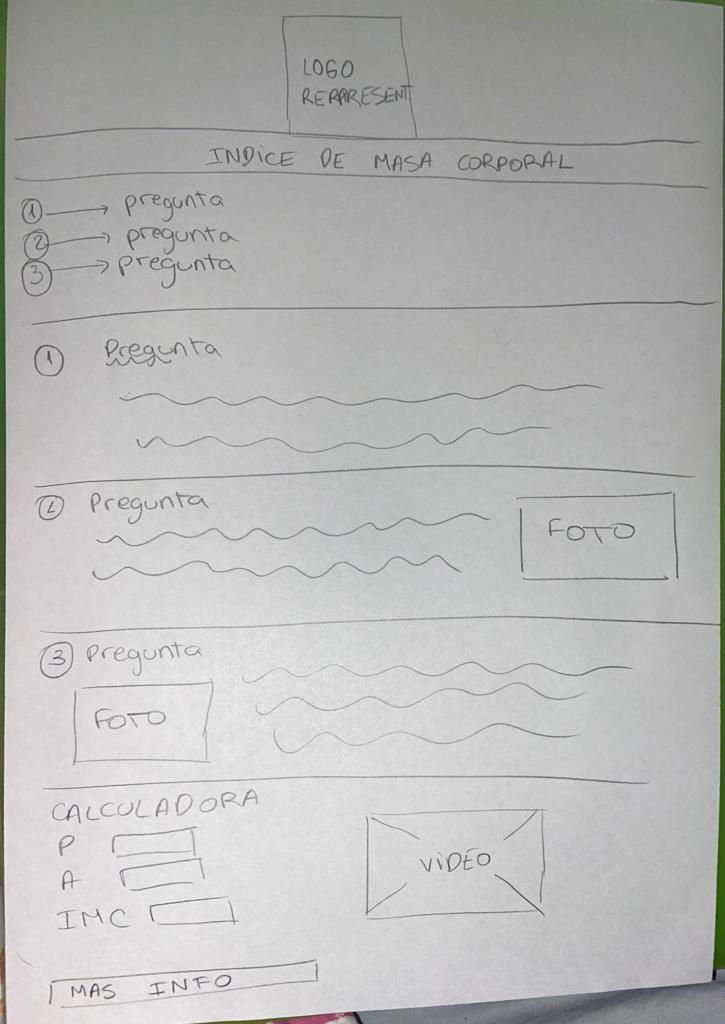 LOGO
RERPRESENT
INDICE DE MASA CORPORAL
1 → pregunta
2 → pregunta
3 → pregunta
1 Pregunta
2 Pregunta
FOTO
3 Pregunta
FOTO
CALCULADORA
P
A
IMC
VIDEO
MAS INFO